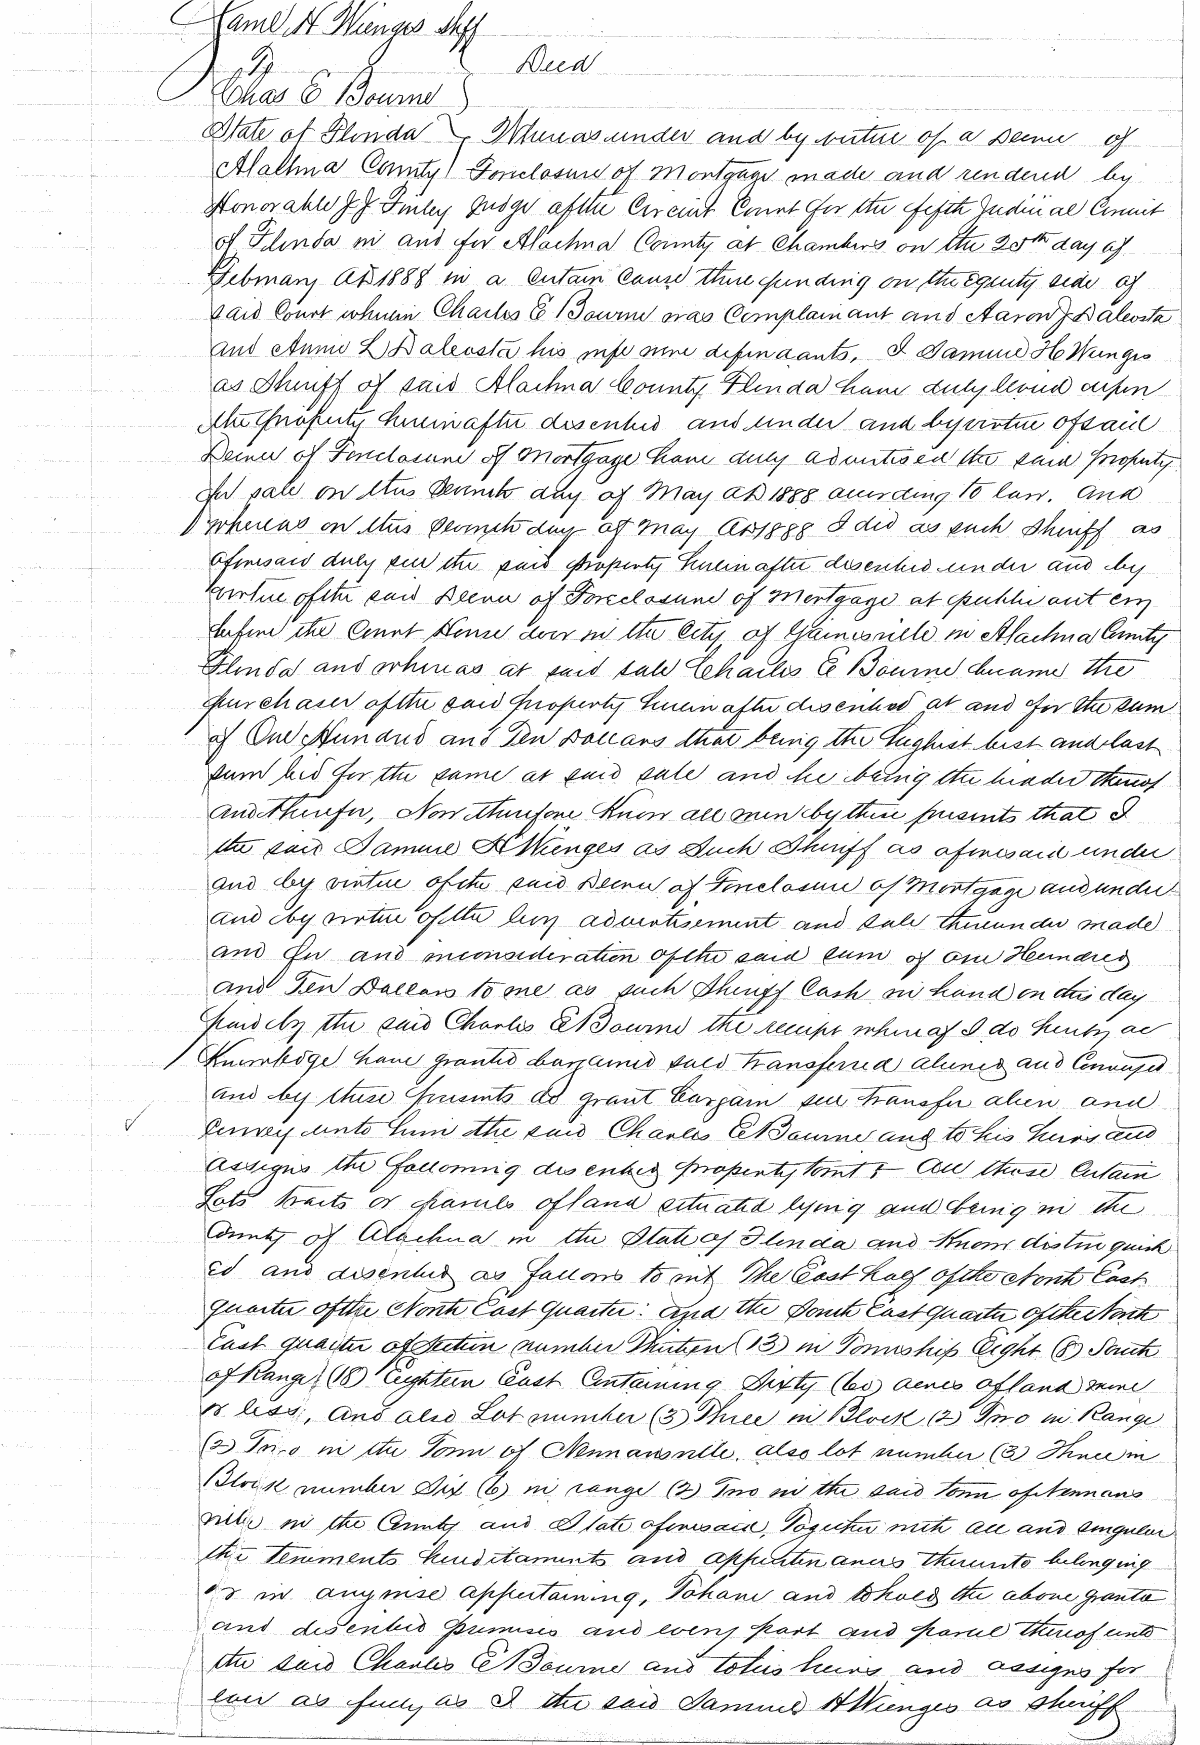 Saml H Wienges Shff
To Deed
Chas E Bourne
State of Florida Whereas under and by virtue of a Decree of
Alachua County Foreclosure of Mortgage made and rendered by
Honorable J J Finley Judge of the Circuit Court for the fifth Judicial Circuit
of Florida in and for Alachua County at Chambers on the 25th day of
February AD 1888 in a Certain Cause there pending on the Equity side of
said Court wherein Charles E Bourne was Complainant and Aaron J Dalcosta
and Annie L Dalcosta his wife were defendants. I Samuel H Wienges
as Sheriff of said Alachua County Florida have duly levied upon
the property hereinafter described and under and by virtue of said
Decree of Foreclosure of Mortgage have duly advertised the said property
for sale on this Seventh day of May AD 1888 according to law. And
whereas on this Seventh day of May AD 1888 I did as such Sheriff as
aforesaid duly sell the said property hereinafter described under and by
virtue of the said Decree of Foreclosure of Mortgage at public out cry
before the Court House door in the City of Gainesville in Alachua County
Florida and whereas at said sale Charles E Bourne became the
purchaser of the said property hereinafter described at and for the sum
of One Hundred and Ten Dollars that being the highest best and last
sum bid for the same at said sale and he being the bidder thereof
and therefor, Now therefore Know all men by these presents that I
the said Samuel H Wienges as Such Sheriff as aforesaid under
and by virtue of the said Decree of Foreclosure of Mortgage and under
and by virtue of the levy advertisement and sale thereunder made
and for and in consideration of the said sum of one Hundred
and Ten Dollars to me as such Sheriff Cash in hand on this day
paid by the said Charles E Bourne the receipt whereof I do hereby ac
Knowledge have granted bargained sold transferred aliened and Conveyed
and by these presents do grant bargain sell transfer alien and
Convey unto him the said Charles E Bourne and to his heirs and
assigns the following described property towit : All those Certain
Lots tracts or parcels of land situated lying and being in the
County of Alachua in the State of Florida and Known distinguish
ed and described as follows to wit The East half of the North East
quarter of the North East Quarter : and the South East quarter of the North
East quarter of Section number Thirteen (13) in Township Eight (8) South
of Range (18) Eighteen East Containing Sixty (60) acres of land more
or less, And also Lot number (3) Three in Block (2) Two in Range
(2) Two in the Town of Newnansville. also lot number (3) Three in
Block number Six (6) in range (2) Two in the said Town of Newnans
ville in the County and State aforesaid, Together with all and singular
the tenements hereditaments and appurtenances thereunto belonging
or in anywise appertaining, To have and to hold the above granted
and described premises and every part and parcel thereof unto
the said Charles E Bourne and to his heirs and assigns for
ever as fully as I the said Samuel H Wienges as sheriff